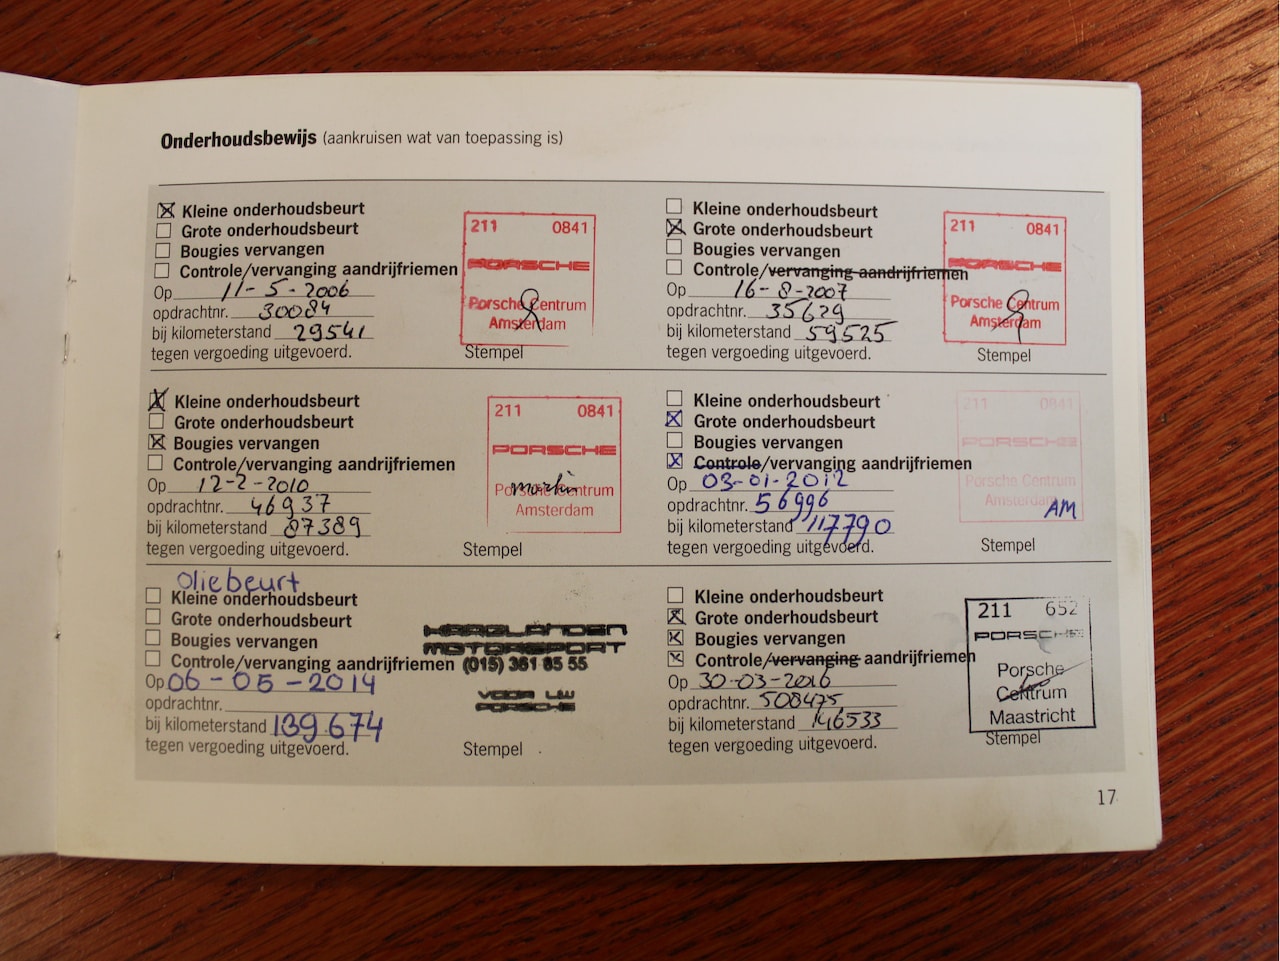 Onderhoudsbewijs (aankruisen wat van toepassing is)
Kleine onderhoudsbeurt
Grote onderhoudsbeurt
Bougies vervangen
Controle/vervanging aandrijfriemen
Op 11-5-2006
opdrachtnr. 30084
bij kilometerstand 29541
tegen vergoeding uitgevoerd.
211 0841
PORSCHE
Porsche Centrum
Amsterdam
Stempel
Kleine onderhoudsbeurt
Grote onderhoudsbeurt
Bougies vervangen
Controle/vervanging aandrijfriemen
Op 16-8-2007
opdrachtnr. 35629
bij kilometerstand 59525
tegen vergoeding uitgevoerd.
211 0841
PORSCHE
Porsche Centrum
Amsterdam
Stempel
Kleine onderhoudsbeurt
Grote onderhoudsbeurt
Bougies vervangen
Controle/vervanging aandrijfriemen
Op 12-2-2010
opdrachtnr. 46937
bij kilometerstand 87389
tegen vergoeding uitgevoerd.
211 0841
PORSCHE
Porsche Centrum
Amsterdam
Stempel
Kleine onderhoudsbeurt
Grote onderhoudsbeurt
Bougies vervangen
Controle/vervanging aandrijfriemen
Op 03-01-2012
opdrachtnr. 56996
bij kilometerstand 117790
tegen vergoeding uitgevoerd.
211 0841
PORSCHE
Porsche Centrum
Amsterdam
AM
Stempel
Oliebeurt
Kleine onderhoudsbeurt
Grote onderhoudsbeurt
Bougies vervangen
Controle/vervanging aandrijfriemen
Op 06-05-2014
opdrachtnr.
bij kilometerstand 139.674
tegen vergoeding uitgevoerd.
HAAGLANDEN
MOTORSPORT
(015) 361 85 55
VOOR UW
PORSCHE
Stempel
Kleine onderhoudsbeurt
Grote onderhoudsbeurt
Bougies vervangen
Controle/vervanging aandrijfriemen
Op 30-03-2016
opdrachtnr. 508475
bij kilometerstand 146533
tegen vergoeding uitgevoerd.
211 652
PORSCHE
Porsche
Centrum
Maastricht
Stempel
17